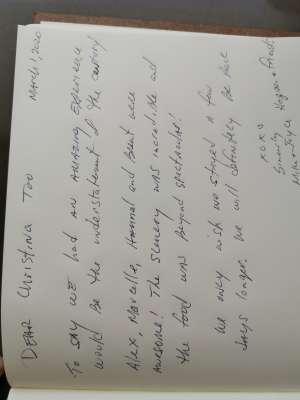 Dear Christina Too
March 1, 2020
To say we had an amazing experience
would be the understatement of the century
Alex, Marcelle, Hannal and Brent were
awesome! The scenery was incredible and
the food was beyond spectacular!
We only wish we stayed a few
days longer. We will definitely be back
xoxo
Sincerely
Mike + Joyce